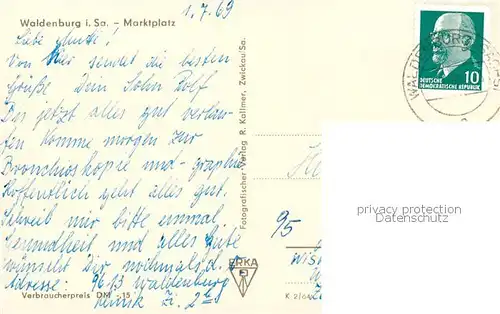 1.7.69
Waldenburg i. Sa. – Marktplatz
Liebe Mutti!
Von hier sendet die besten
Grüße Dein Sohn Rolf
Des jetzt alles gut verlau-
fen komme morgen zur
Bronchioskopie und -graphie
Hoffentlich geht alles gut.
Schreib mir bitte einmal.
Gesundheit und alles Gute
wünscht Dir nochmals d.
Adresse: 9613 Waldenburg
Klinik Zi. 2
Verbraucherpreis DM -,15
Fotografischer Verlag R. Kallmer, Zwickau/Sa.
ERKA
10
DEUTSCHE
DEMOKRATISCHE REPUBLIK
WALDENBURG
privacy protection
Datenschutz
95